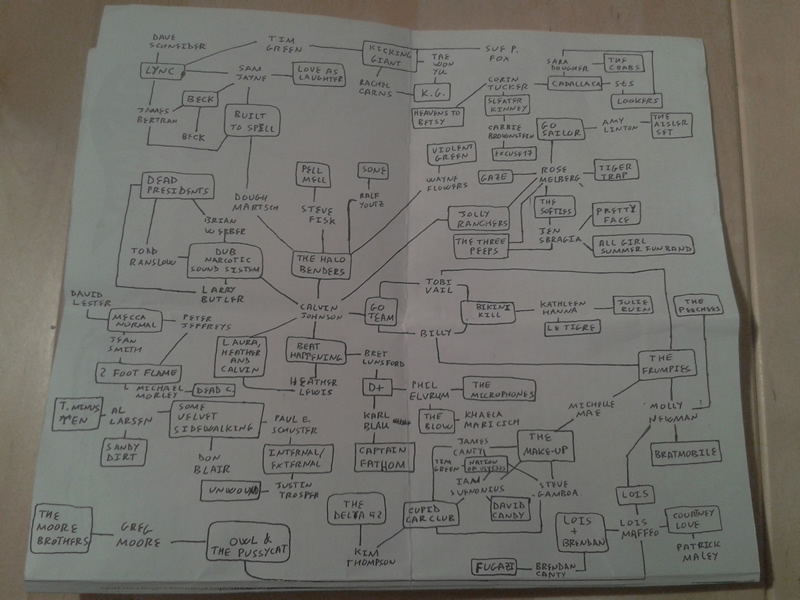 DAVE
SCHNEIDER
TIM
GREEN
KICKING
GIANT
TAE
WON
YU
SUE P.
FOX
SARA
DOUGHER
THE
COABS
LYNC
SAM
JAYNE
LOVE AS
LAUGHTER
RACHEL
CARNS
K.G.
CORIN
TUCKER
CADALLACA
STS
LOOKERS
JAMES
BERTRAM
BECK
BECK
BUILT
TO SPILL
HEAVENS TO
BETSY
SLEATER
KINNEY
CARRIE
BROWNSTEIN
EXCUSE 17
GO
SAILOR
AMY
LINTON
THE
AISLER
SET
DEAD
PRESIDENTS
PELL
MELL
SONE
VIOLENT
GREEN
WAYNE
FLOWERS
GAZE
ROSE
MELBERG
TIGER
TRAP
BRIAN
WEBER
DOUGH
MARTSCH
STEVE
FISK
RALF
YOUTZ
JOLLY
RANCHERS
THE
SOFTIES
PRETTY
FACE
TODD
RANSLOW
DUB
NARCOTIC
SOUND SISTEM
THE HALO
BENDERS
THE THREE
PEEPS
JEN
SBRAGIA
ALL GIRL
SUMMER FUN BAND
LARRY
BUTLER
CALVIN
JOHNSON
GO
TEAM
TOBI
VAIL
BILLY
BIKINI
KILL
KATHLEEN
HANNA
JULIE
RUIN
LE TIGRE
THE
PEECHEES
DAVID
LESTER
MECCA
NORMAL
PETER
JEFFREYS
JEAN
SMITH
LAURA,
HEATHER
AND
CALVIN
BEAT
HAPPENING
BRET
LUNSFORD
HEATHER
LEWIS
THE
FRUMPIES
2 FOOT FLAME
MICHAEL
MORLEY
DEAD C
D+
PHIL
ELVRUM
THE
MICROPHONES
MICHELLE
MAE
MOLLY
NEWMAN
T. MINUS
TEN
AL
LARSEN
SOME
VELVET
SIDEWALKING
PAUL E.
SCHUSTER
KARL
BLAU
THE
BLOW
KHAELA
MARICICH
SANDY
DIRT
DON
BLAIR
INTERNAL/
EXTERNAL
CAPTAIN
FATHOM
JAMES
CANTY
TIM
GREEN
NATION
OF ULYSSES
THE
MAKE-UP
BRATMOBILE
UNWOUND
JUSTIN
TROSPER
IAN
SVENONIUS
STEVE
GAMBOA
LOIS
THE
MOORE
BROTHERS
GREG
MOORE
OWL &
THE PUSSYCAT
THE
DELTA 72
CUPID
CAR CLUB
DAVID
CANDY
LOIS
+
BRENDAN
LOIS
MAFFEO
COURTNEY
LOVE
KIM
THOMPSON
FUGAZI
BRENDAN
CANTY
PATRICK
MALEY